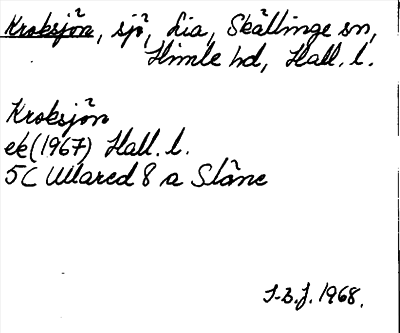 Kroksjön, sjö, Lia, Skällinge sn,
Himle hd, Hall. l.
Kroksjön
ek (1967) Hall. l.
5C Ullared 8 a Slåne
S.B.J. 1968.